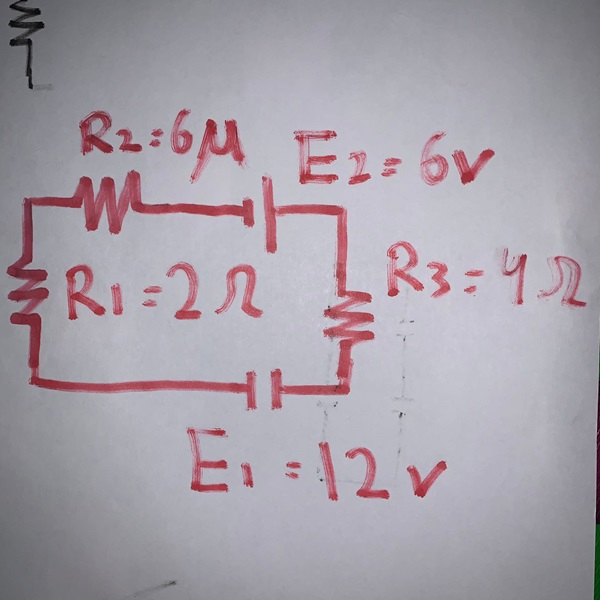 R2=6μ
E2=6v
R1=2Ω
R3=4Ω
E1=12v